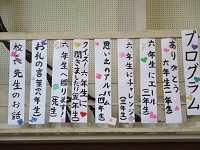 プログラム
ありがとう六年生(一年生)
六年生にエール(二年生)
六年生にチャレンジ(三年生)
思い出のアルバム(四年生)
クイズ!六年生に聞きました!(五年生)
六年生へ贈ります!(先生)
お礼の言葉(六年生)
校長先生のお話